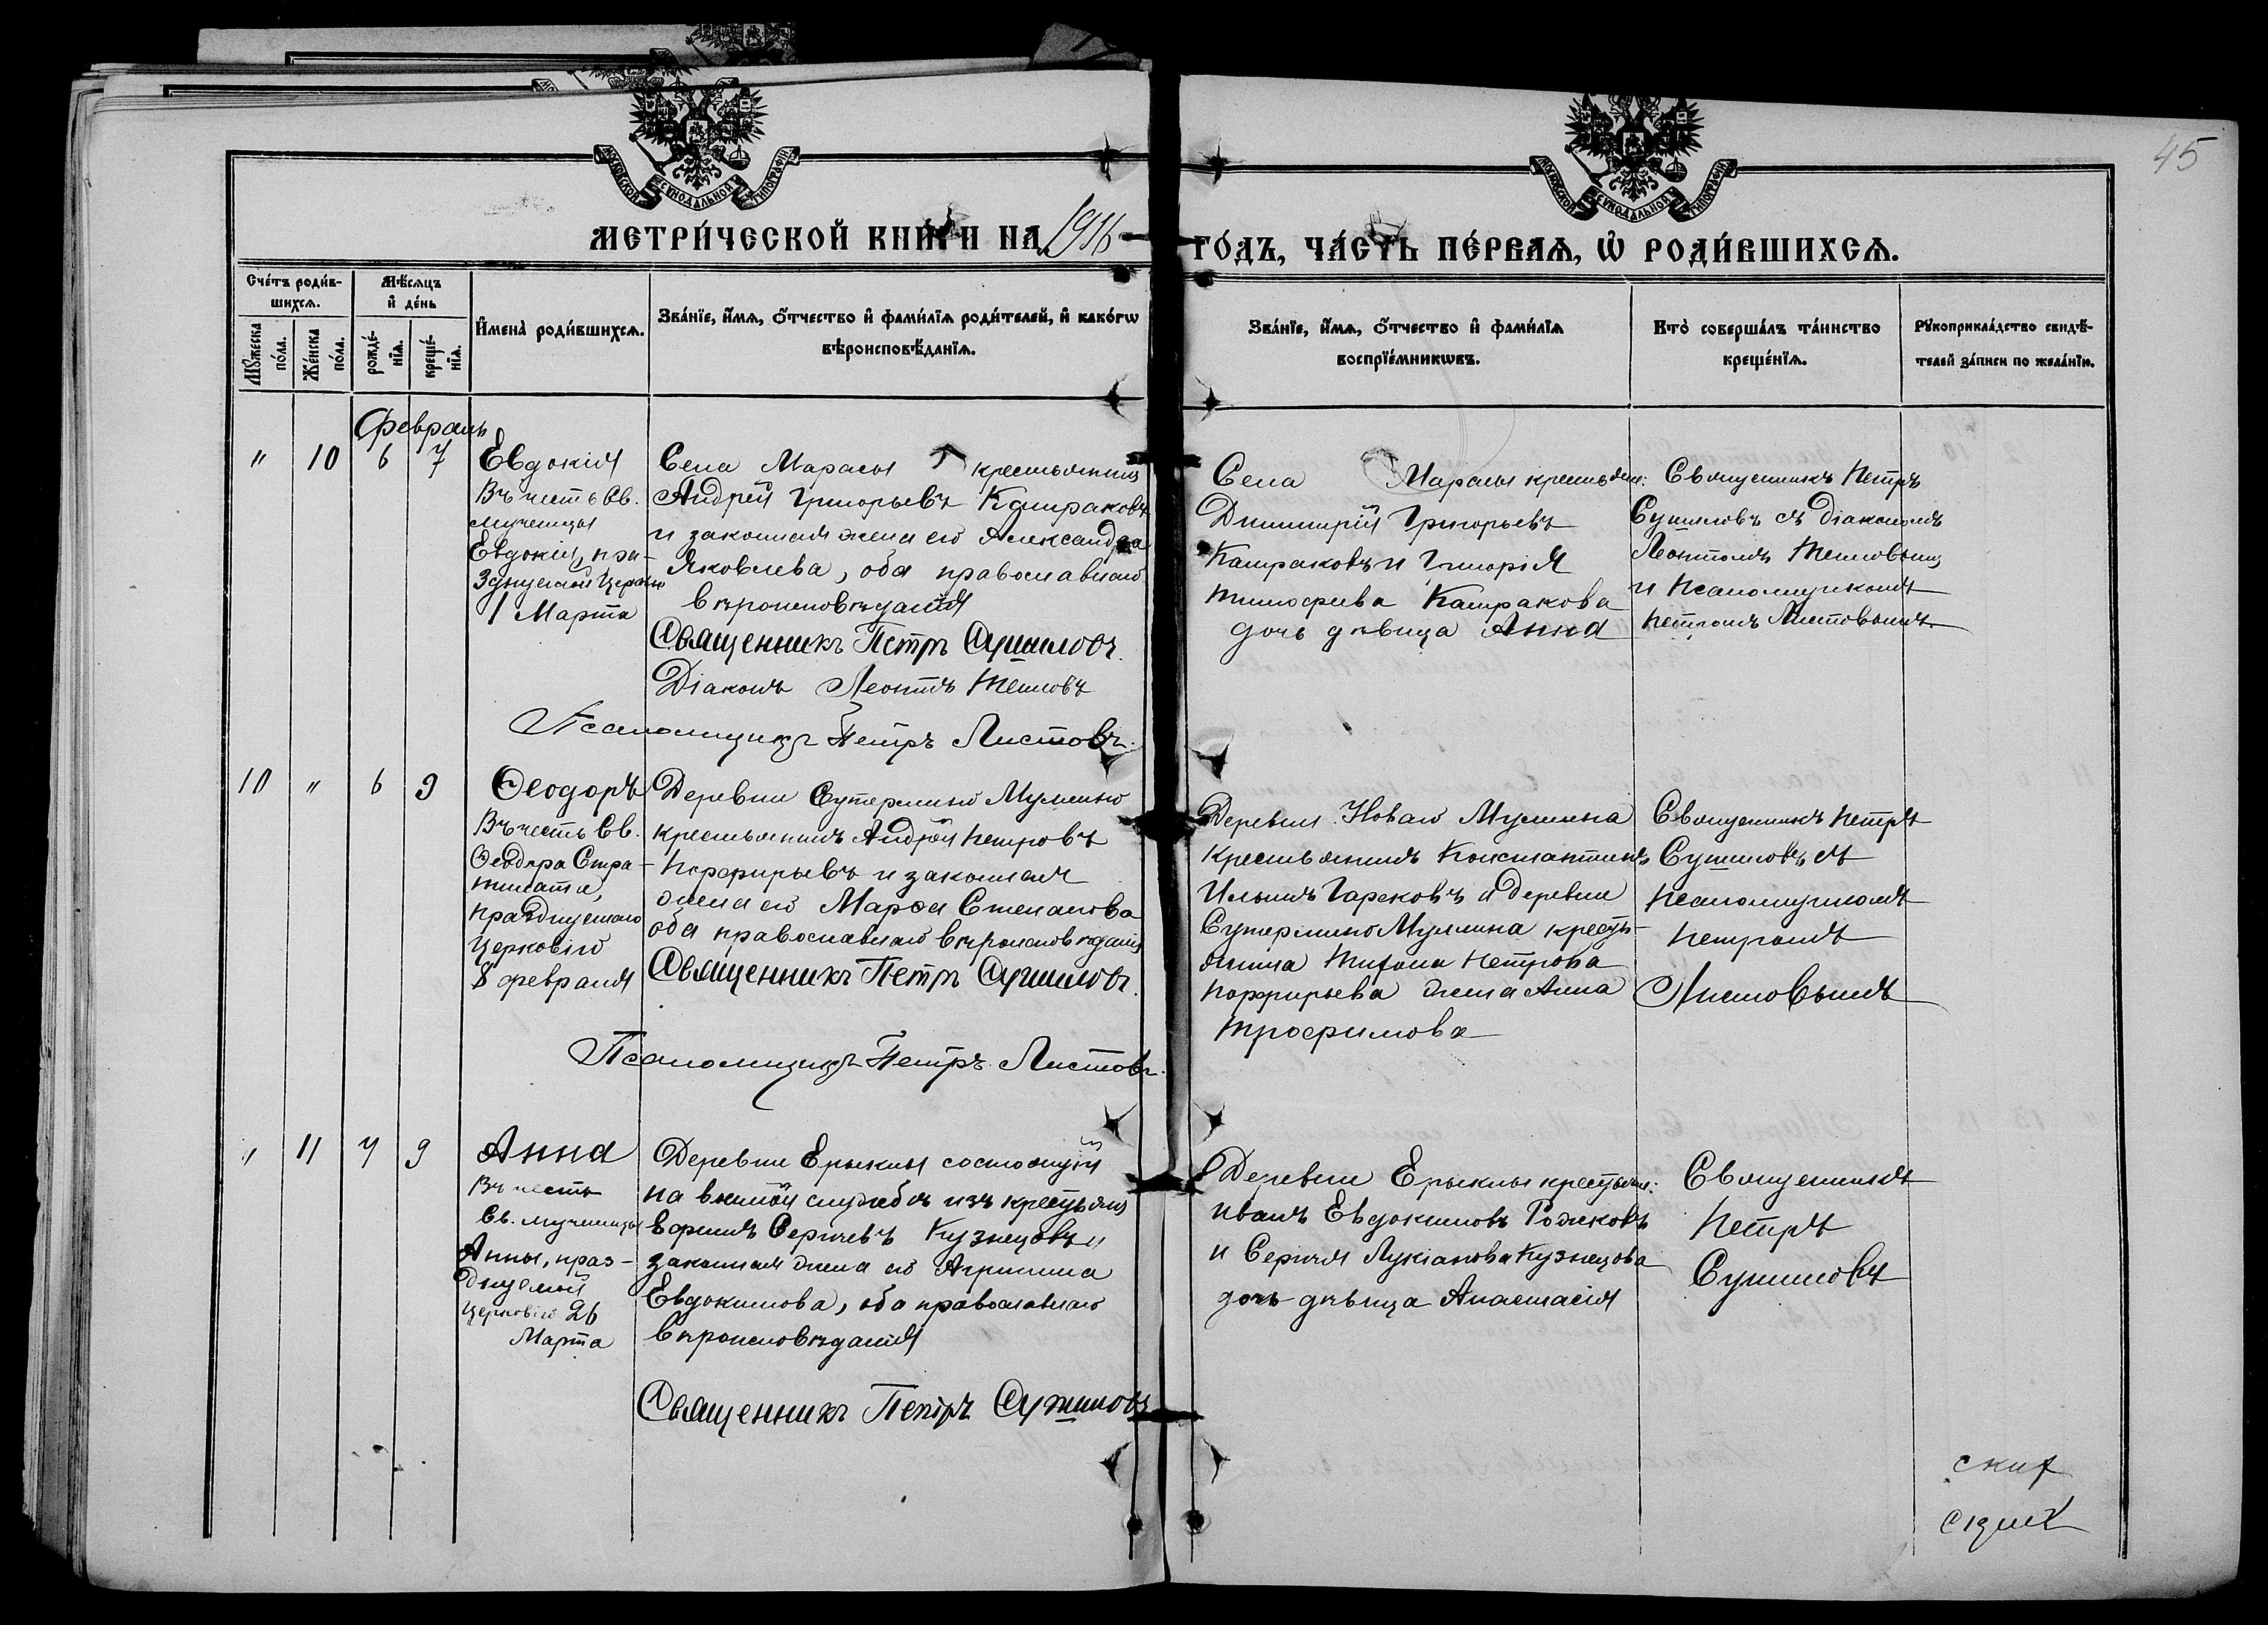 45
МОСКОВСКОЙ СѴНОДАЛЬНОЙ ТИПОГРАФІИ
МОСКОВСКОЙ СѴНОДАЛЬНОЙ ТИПОГРАФІИ
МЕТРИ́ЧЕСКОЙ КНИ́ГИ НА 1916
ГО́ДЪ, ЧА́СТЬ ПЕ́РВАѦ, Ѡ РОДИ́ВШИХСѦ.
Сче́тъ роди́в-
шихсѧ.
Мꙋ́жеска
по́ла.
Же́нска
по́ла.
Мѣ́сѧцъ
и҆ де́нь
рожде́-
нїѧ.
креще́-
нїѧ.
И҆мена̀ роди́вшихсѧ.
Зва́нїе, и҆́мѧ, ѻ҆́тчество и҆ фами́лїѧ роди́телей, и҆ како́гѡ
вѣроисповѣ́данїѧ.
Зва́нїе, и҆́мѧ, ѻ҆́тчество и҆ фами́лїѧ
воспрїе́мникѡвъ.
Кто̀ соверша́лъ та́инство
креще́нїѧ.
Рꙋкоприкла́дство свидѣ́-
телей за́писи по жела́нїю.
Февраль
" 10 6 7
Евдокія
Въ честь Св.
мученицы
Евдокіи, пра-
зднуемой Церковію
1 Марта
Села Марасы крестьянинъ
Андрей Григорьевъ Камраковъ
и законная жена его Александра
Яковлева, оба православнаго
вѣроисповѣданія
Священникъ Петръ Сушиловъ.
Діаконъ Леонтій Тепловъ
Псаломщикъ Петръ Листовъ.
Села Марасы крестьян:
Димитрій Григорьевъ
Камраковъ и Григорія
Тимофеева Камракова
дочь дѣвица Анна
Священникъ Петръ
Сушиловъ съ діакономъ
Леонтіемъ Тепловымъ
и псаломщикомъ
Петромъ Листовымъ.
10 " 6 9
Ѳеодоръ
Въ честь Св.
Ѳеодора Стра-
тилата,
празднуемаго
Церковію
8 февраля
Деревни Сутермино Мулино
крестьянинъ Андрей Петровъ
Порфирьевъ и законная
жена его Марѳа Степанова
оба православнаго вѣроисповѣданія
Священникъ Петръ Сушиловъ.
Псаломщикъ Петръ Листовъ.
Деревни Новаго Мулина
крестьянинъ Константинъ
Ильинъ и деревни
Сутермино Мулина кресть-
янина Петрова
Порфирьева жена Анна
Трофимова
Священникъ Петръ
Сушиловъ съ
псаломщикомъ
Петромъ
Листовымъ
" 11 7 9
Анна
Въ честь
Св. мученицы
Анны, праз-
днуемой
Церковію 26
Марта
Деревни Ерыклы состоящій
на военной службѣ изъ крестьянъ
Ефимъ Сергѣевъ Кузнецовъ и
законная жена его Агрипина
Евдокимова, оба православнаго
вѣроисповѣданія
Священникъ Петръ Сушиловъ
Деревни Ерыклы крестьян:
Иванъ Евдокимовъ Родіковъ
и Сергѣя Лукіанова Кузнецова
дочь дѣвица Анастасія
Священникъ
Петръ
Сушиловъ